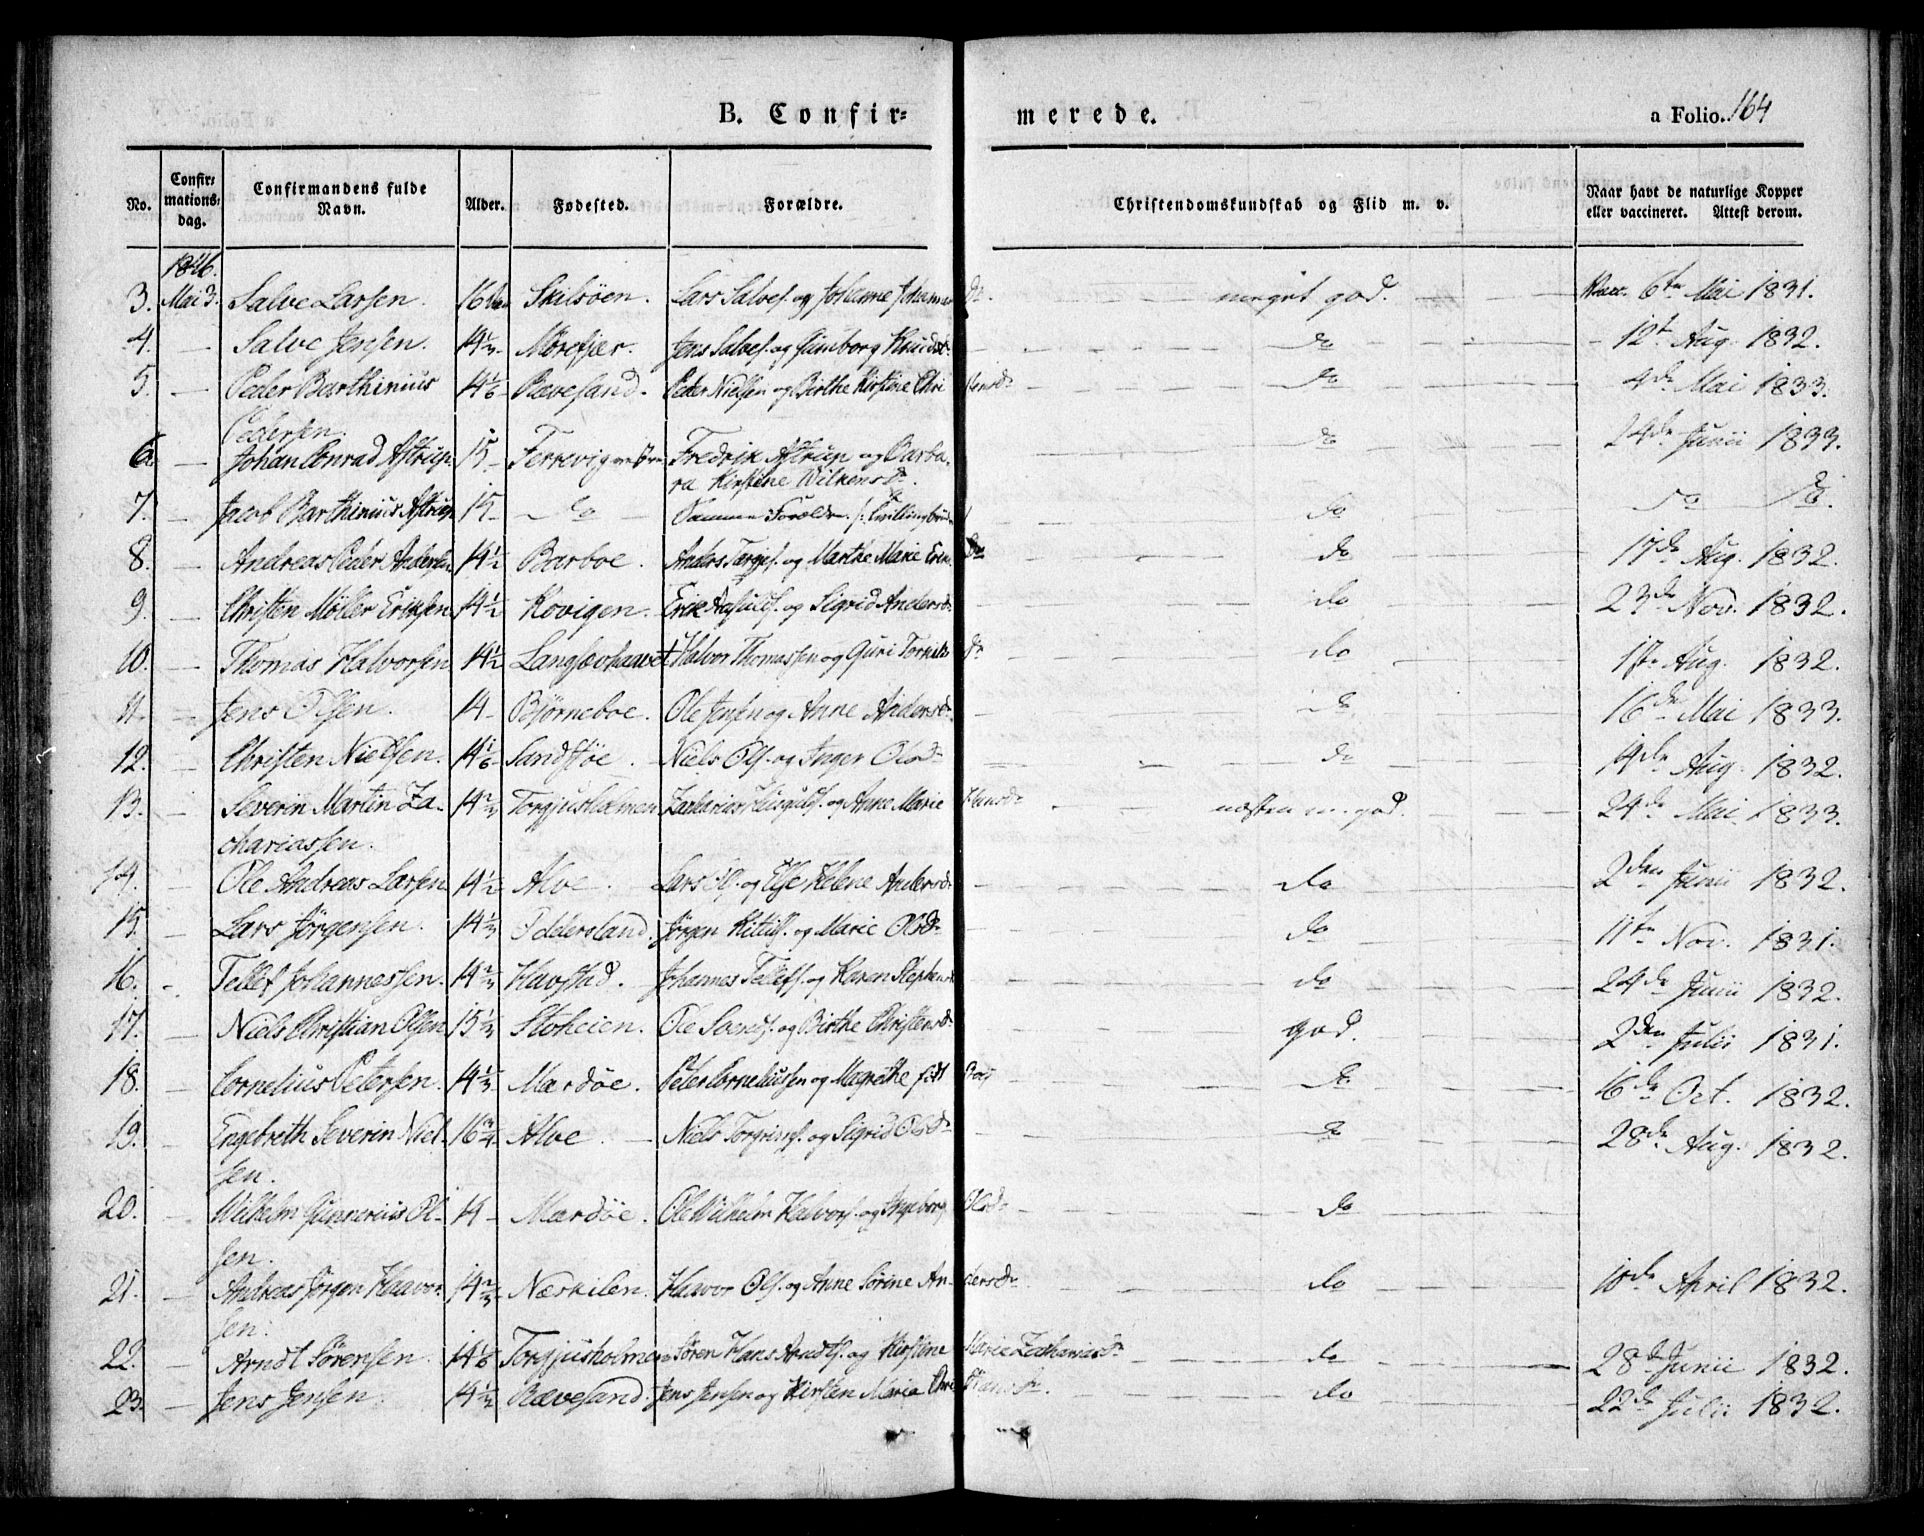 B. Confir= merede. a Folio. 164
No. Confir= mations= dag. Confirmandens fulde Navn. Alder. Fødested. Forældre. Christendomskundskab og Flid m. v. Naar havt de naturlige Kopper eller vaccineret. Attest derom.
1846.
3. Mai 3. Salve Larsen. 16 Skilsöen. Lars Salves. og Johanne dr. meget god. 6te Mai 1831.
4. — Salve Jensen. 14 1/3 Mörefjær. Jens Salves. og Knudsd. do 12te Aug. 1832.
5. — Peder Barthinius 14 1/6 Rævesand. Peder Nielsen og Birthe Kirstine Chri stensdr do 4de Mai 1833.
Pedersen.
6. — Johan Conrad Astrup 15 Terrevig Fredrik Astrup og Barba- do 24de Junii 1833.
ra Kirstine Wilkensdr.
7. — Jacob Barthinius Astrup 15 do Samme Forældre do do do.
8. — Andreas Peder Andersen 14 1/2 Barboe. Anders Targes. og Marthe Marie dr do 17de Aug. 1832.
9. — Christen Möller Eriksen 14 1/2 Kovigen. Erik og Sigrid Andersd. do 23de Nov. 1832.
10. — Thomas Halvorsen 14 1/2 Langsævhaavet Halvor Thomassen og Guri dr do Aug. 1832.
11. — Jens Olsen. 14 — Björneboe. Ole Jensen og Anne Andersd. do 16de Mai 1833.
12. — Christen Nielsen. 14 1/6 Sandstöe. Niels Ols. og Inger Olsdr do 14de Aug. 1832.
13. — Severin Martin Za- 14 2/3 Torgjusholmen Zacharias og Anne Marie Hansdr næsten m. god. 24de Mai 1833.
chariassen.
14. — Ole Andreas Larsen 14 1/2 Alve. Lars Ol. og Else Helene Andersd. do 2den Junii 1832.
15. — Lars Jörgensen. 14 1/3 Jörgen Kittils. og Marie Olsdr do 11te Nov. 1831.
16. — Tellef Johannessen. 14 2/3 Havstad. Johannes Tellefs. og Karen do 24de Junii 1832.
17. — Niels Christian Olsen 15 1/3 Stoheien. Ole og Birthe Christensd. god. 2den Julii 1831.
18. — Cornelius Petersen. 14 1/3 Mærdöe. Peter Corneliussen og Magrethe født do 16de Oct. 1832.
19. — Engebreth Severin Niel- 16 3/4 Alve. — Niels og Sigrid Olsdr do 28de Aug. 1832.
sen.
20. — Wilhelm Gunnerius Ol- 14 — Mærdöe. Ole Wilhelm Halvors. og Ingeborg Olsdr do
sen.
21. — Andreas Jörgen Haavor- 14 2/3 Næskilen. Haavor Ols. og Anne Sörine An- dersdr. do 10de April 1832.
sen.
22. — Arndt Sörensen. 14 1/6 Torgjusholmen Sören Hans Arndts. og Kirstine Marie Zachariasdr do 28de Junii 1832.
23. — Jens Jensen. 14 1/2 Rævesand. Jens Jensen og Kirsten Maria Chri stiansdr. do 22de Julii 1832.